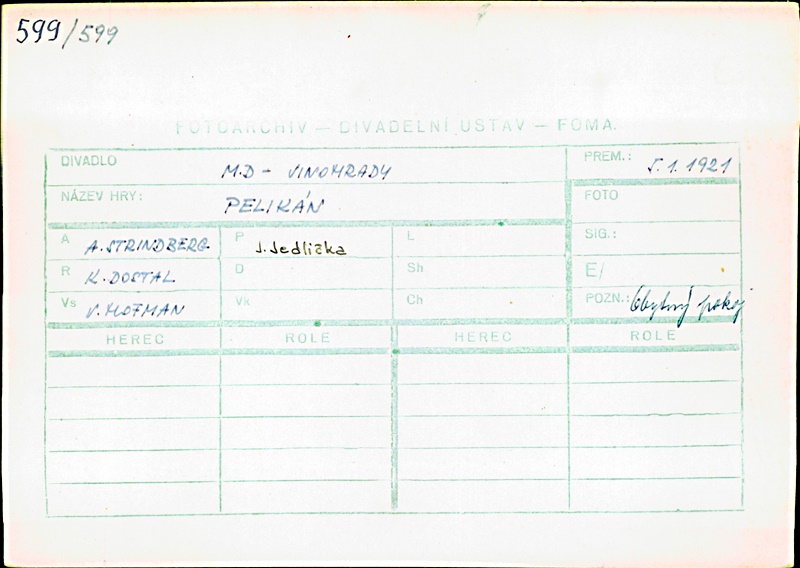 599/599
FOTOARCHIV — DIVADELNÍ USTAV — FOMA.
DIVADLO M.D - VINOHRADY PREM.: 5.1.1921
NÁZEV HRY: PELIKÁN FOTO
A A. STRINDBERG P J. Jedlička L SIG.:
R K. DOSTAL D Sh E/
Vs V. HOFMAN Vk Ch POZN.: Obytný pokoj
HEREC ROLE HEREC ROLE